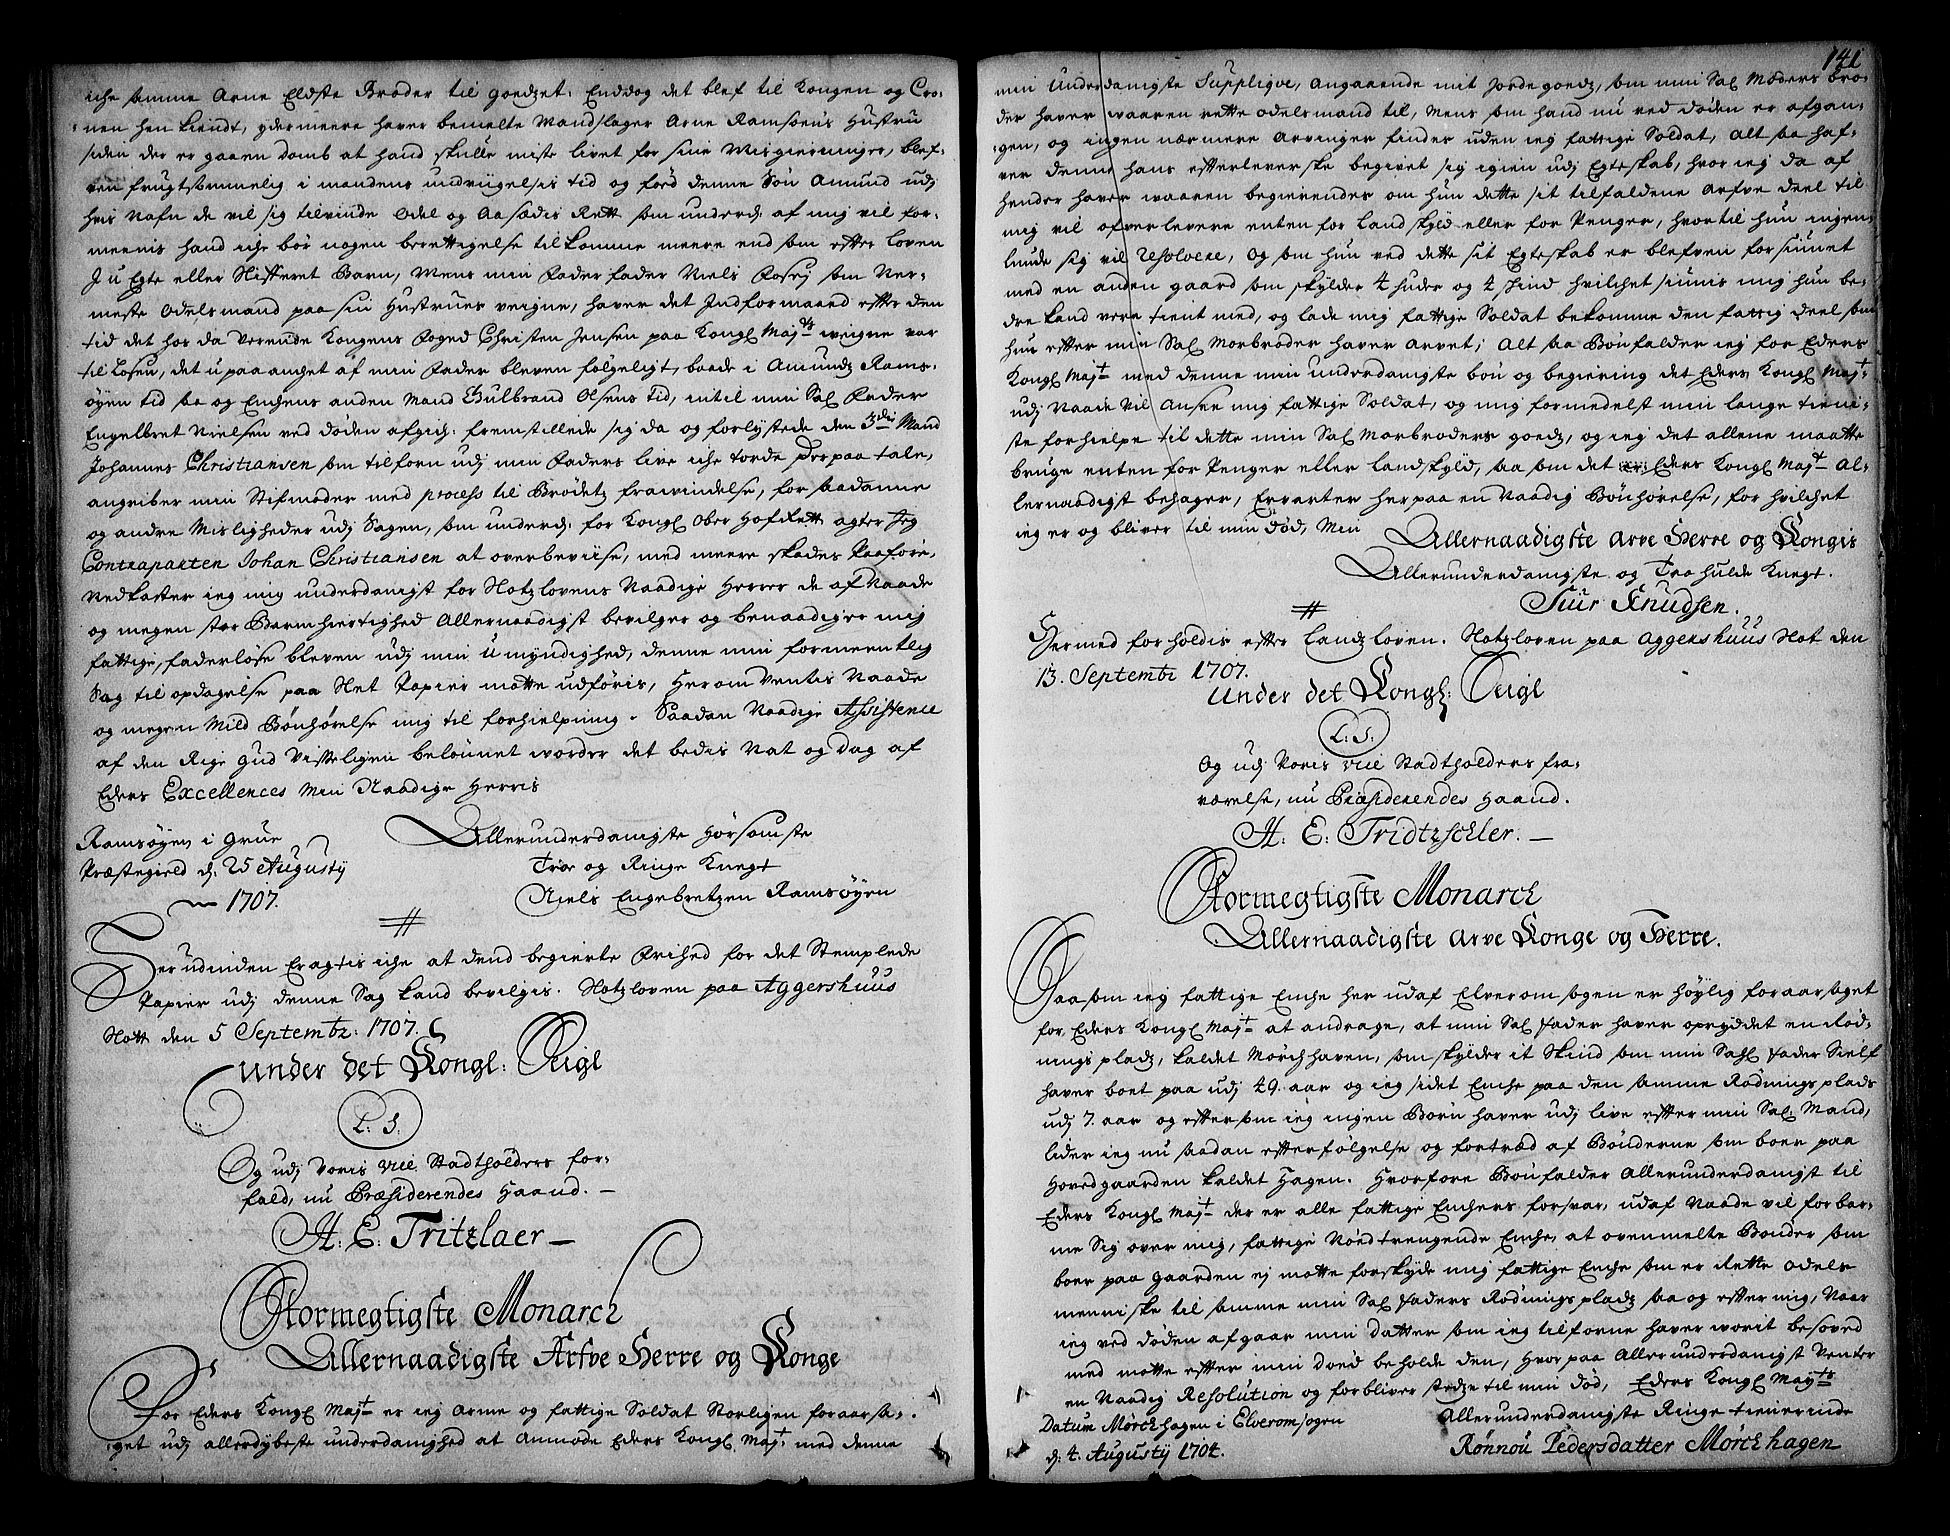 iche samme Arne Eldste Broder til goedzet. Enddog det blef til Kongen og Cro-
nen hen kiendt, ydermeere haver bemelte Mandslager Arne Ramsøens Hustru
siden der er gaaen domb at hand skulle miste livet for sine Misgierninger, blef-
ven frugtsommelig i mandens undvigelsis tid og fød denne Søn Amund udj
hvis Nafn de vil sig tilvinde Odel og Aasædis Rett som underd: af mig vil for-
meenis hand iche bør nogen berettigelse tilkomme meere end som effter loven
J u Egte eller Slifferet Barn, Mens min Faderfader Niels Fosej som Ner-
meste Odelsmand paa sin Hustrues veigne, haver det Indformaaed effter den
tid det hos da Verende Kongens Foged Christen Jensen paa Kongl Maj:ts weigne var
til Løsen, det upaaanchet af min Fader bleven følgeligt, baade i Amundz Rams-
øyen tid saa og Enchens anden Mand Gulbrand Olsens Tid, intil min Sal Fader
Engelbret Nielsen ved døden afgich: fremstillede sig da og forlystede den 3die Mand
Johannes Christiansen som tilforn udj min Faders live iche torde derpaa tale,
angriber min Stifmoder med process til Brødetz frawindelse, for saadanne
og andre Misligheder udj Sagen, som underd: for Kongl Ober Hof Rett agter Jeg
Contraparten Johan Christiansen at overbeviise, med meere skades Paaføre,
Nedkaster ieg mig underdanigst for Slotzlovens Naadige Herrer de af Naade
og megen stor Barmhiertighed Allernaadigst bevilger og benaadiger mig
fattige, faderløse bleven udj min Umyndighed, denne min formeentlig
Sag til opdagelse paa Slet Papier motte udføris, Herom Ventis Naade
og megen Mild Bønhørelse mig til forhielpning. Saadan Naadige Assistence
af den Rige Gud Visseligen belønnet worder det bedis Nat og dag af
Eders Excellences Min Naadige Herris
Ramsøyen i Grue
Præstegield d: 25 Augustij
1707.
Allerunderdanigste Hørsomste
Troe og Ringe Knegt
Niels Engebretzen Ramsøyen
Her udinden Eragtis iche at dend begierte Frihed for det Stemplede
Papier udj denne Sag kand bevilgis. Slotzloven paa Aggershuus
Slott den 5 Septembr: 1707.
Under det Kongl: Seigl
L: S:
Og udj Voris vice Stadtholders for-
fald, nu Præsiderendes Haand. —
H: E: Tritzlaer —
Stormegtigste Monarch
Allernaadigste Arfve Herre og Konge
For Eders Kongl Maj:t er ieg Arme og fattige Soldat Storligen foraarsa-
get udj allerdybeste underdanighed at Anmode Eders Kongl Maj:t med denne
141
min Underdanigste Supplique, angaaende mit Jordegoedz, som min Sal Moders bro-
der haver waaren rette odelsmand til, Mens som hand nu ved døden er afgan-
gen, og ingen nærmere Arvinger finder uden ieg fattige Soldat, Alt saa haf-
ver denne hans effterleverske begivet sig igien udj Egteskab, hvor ieg da af
hender haver waaren begierendes om hun dette sit tilfaldene Arfve deel til
mig vil ofverlevere enten for Landskyld eller for Penger, hvortil hun ingen-
lunde sig vil resolvere, og som hun ved dette sit Egteskab er blefven forsiunet
med en anden gaard som skylder 4 huder og 4 skind hvilchet siunis mig hun be-
dre kand vere tient med, og lade mig fattige Soldat bekomme den fattig deel som
hun effter min Sal Morbroder haver arvet; Alt saa Bønfalder ieg for Eders
Kongl Maj:t med denne min underdanigste bøn og begiering det Eders Kongl Maj:t
udj Naade vil Ansee mig fattige Soldat, og mig formedelst min lange tieni-
ste forhielpe til dette min Sal Morbroders goedz, og ieg det allene maatte
bruge enten for Penger eller landskyld, saa som det Eders Kongl Maj:t Al-
lernaadigst behager, Ervarter herpaa en Naadig Bønhørelse, for hvilchet
ieg er og bliver til min død, Min
Allernaadigste Arve Herre og Kongis
Allerunderdanigste og Tro hulde Knegt.
Siur Knudsen.
Hermed forholdis effter Landzloven. Slotzloven paa Aggershuus Slot den
13. Septembr 1707.
Under det Kongl: Seigl
L: S:
Og udj Voris vice Stadtholders fra-
værelse, nu Præsiderendes Haand.
H: E: Tridtzschler. —
Stormegtigste Monarch
Allernaadigste Arve Konge og Herre.
Saasom ieg fattige Enche her udaf Elverom sogen er høylig foraarsaget
for Eders Kongl Maj:t at andrage, at min Sal Fader haver opryddet en Rød-
nings pladz, kaldet Mørchhaven, som skylder it Skind som min Sahl Fader Sielf
haver boet paa udj 49. aar og ieg sidet Enche paa den samme Rødnings plads
udj 7. aar og effterson ieg ingen Børn haver udj live effter min Sal: Mand,
lider ieg nu saadan effterfølgelse og fortræd af Bønderne som boer paa
Hovedgaarden kaldet Hagen. Hvorfore Bønfalder Allerunderdanigst til
Eders Kongl Maj:t der er alle fattige Enchers forsvar, udaf Naade vil forbar-
me Sig over mig, fattige Nødtrengende Enche, at ovenmelte Bønder som
boer paa gaarden ej motte forskyde mig fattige Enche som er Rette Odels
menniske til samme min Sal Faders Rødnings pladz saa og effter mig, Naar
ieg ved døden afgaar min datter som ieg tilforne haver worit besoved
med motte effter min død beholde den, Hvorpaa Allerunderdanigst Venter
en Naadig Resolution og forbliver stedze til min død, Eders Kongl May:ts
Datum Mørchhagen i Elveromsogen
d: 4. Augustij 1704.
Allerunderdanigste Ringe tienerinde
Rønnou Pedersdatter Mørchhagen